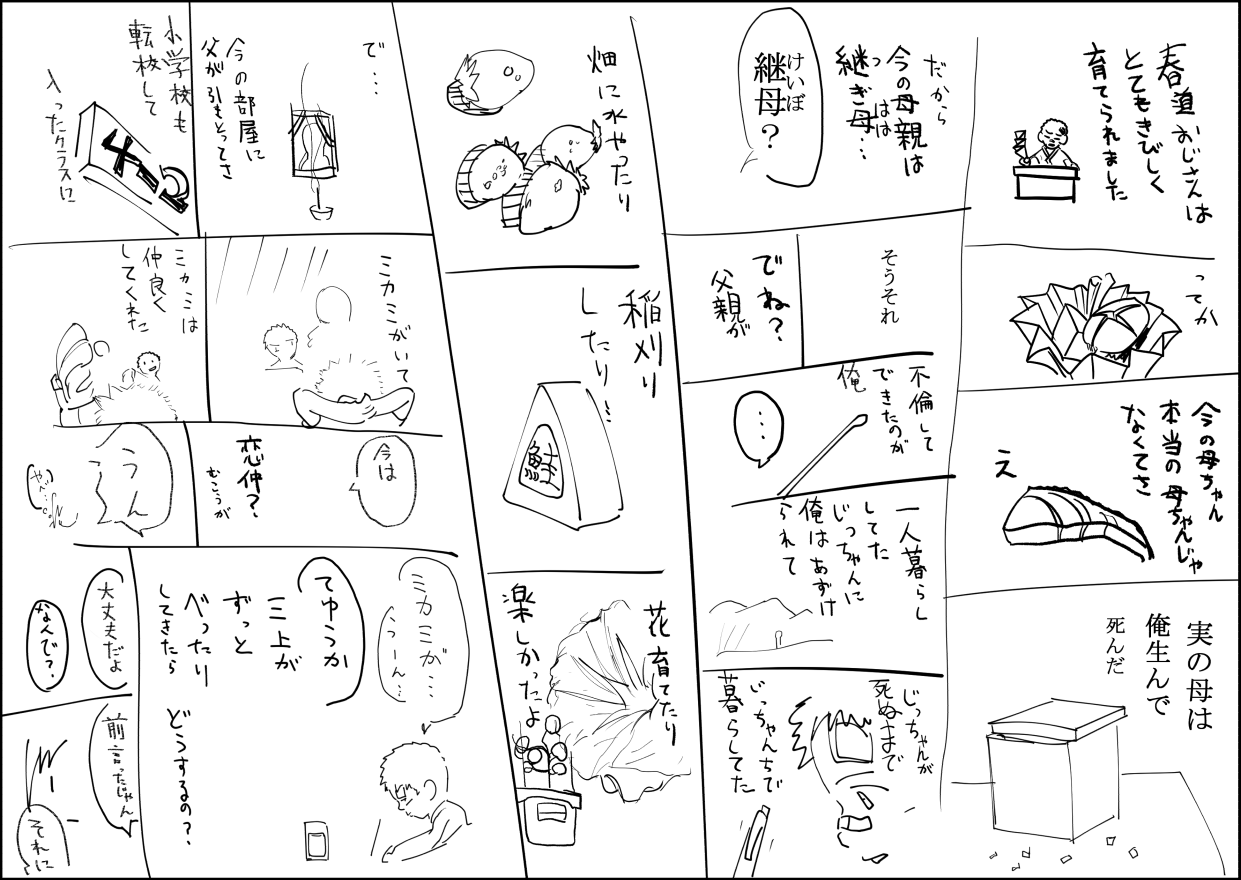 春道おじさんは
とてもきびしく
育てられました
ってか
今の母ちゃん
本当の母ちゃんじゃ
なくてさ
え
実の母は
俺生んで
死んだ
だから
今の母親は
継ぎ母…
つ
はは
けいぼ
継母？
そうそれ
でね？
父親が
不倫して
できたのが
俺
…
一人暮らし
してた
じっちゃんに
俺はあずけ
られて
じっちゃんが
死ぬまで
じっちゃんちで
暮らしてた
畑に水やったり
稲刈り
したり…
鮭
花育てたり
楽しかったよ
で…
今の部屋に
父が引きとってさ
小学校も
転校して
入ったクラスに
4-2
ミカミがいて
ミカミは
仲良く
してくれた
今は
恋仲？
むこうが
うん
ミカミが…
うーん…
てゆうか
三上が
ずっと
べったり
してきたら
どうするの？
大丈夫だよ
なんで？
前言ったじゃん
それに